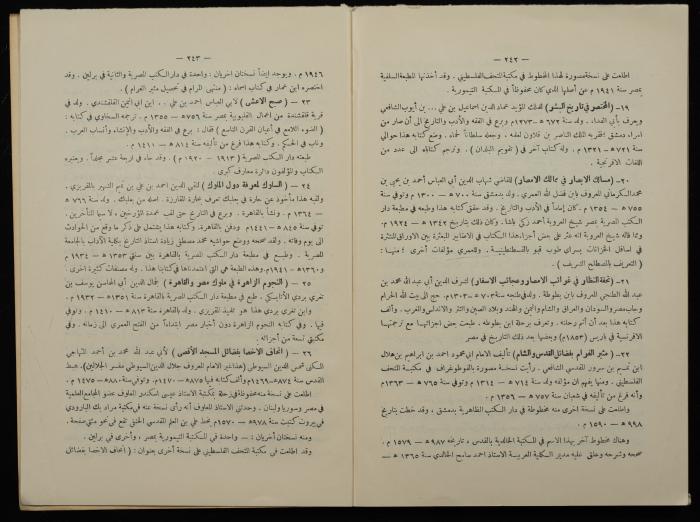 — ٢٤٢ —
اطلعت على نسخة مصورة لهذا المخطوط في مكتبة المتحف الفلسطيني . وقد أخذتها المطبعة السلفية
بمصر سنة ١٩٤١ م من أصلها الذي كان محفوظاً في المكتبة التيمورية .
١٩ – (المختصر في تاريخ البشر) للملك المؤيد عماد الدين اسماعيل بن علي ... بن أيوب الشافعي
ويعرف بأبي الفداء . ولد سنة ٦٧٢ هـ ١٢٧٣ م وبرع في الفقه والأدب والتاريخ الى أن صار من
أمراء دمشق فقربه الملك الناصر بن قلاون لعلمه ، وجعله سلطاناً لحماه . وضع كتابه هذا حوالي
سنة ٧٢١ هـ ١٣٢١ م . وله كتاب آخر في ( تقويم البلدان ) . وترجم كتاباه الى عدد من
اللغات الافرنجية .
٢٠ – (مسالك الابصار في ممالك الامصار) للقاضي شهاب الدين أبي العباس أحمد بن يحيى بن
محمد الكرماني المعروف بابن فضل الله العمري . ولد بدمشق سنة ٧٠٠ هـ – ١٣٠٠ م وتوفي سنة
٧٥٥ هـ – ١٣٥٤ م . كان إماماً في الأدب والتاريخ . وقد حقق كتابه هذا وطبعه في مطبعة دار
الكتب المصرية بمصر شيخ العروبة أحمد زكي باشا . وكان ذلك بتاريخ ١٣٤٢ هـ – ١٩٢٤ م .
ومما قاله شيخ العروبة انه عثر على بعض أجزاء هذا الكتاب في الاضابير المبعثرة بين الاوراق المتناثرة
في أسافل الخزانات بسراي طوب قبو بالقسطنطينية . وللعمري مؤلفات أخرى ؛ منها :
( التعريف بالمصطلح الشريف ) .
٢١ – (تحفة النظار في غرائب الامصار وعجائب الاسفار) لشرف الدين أبي عبد الله محمد بن
عبد الله الطنجي المعروف بابن بطوطة . ولد في طنجة سنة ٧٠٣ هـ – ١٣٠٣ م . حج الى بيت الله الحرام
وجاب مصر والسودان والعراق والشام واليمن والهند وبلاد الصين والتتر والاندلس والمغرب . وألف
كتابه هذا بعد أن أتم رحلته . وتعرف برحلة ابن بطوطه . طبعت بعض أجزائها مع ترجمتها
الافرنسية في باريس (١٨٥٣ م) وبعضها بعد ذلك التاريخ في مصر .
٢٢ – (مثير الغرام بفضائل القدس والشام) تأليف الامام أبي محمود أحمد بن ابراهيم بن هلال
ابن تميم بن سرور المقدسي الشافعي . رأيت نسخة مصورة بالفوطوغراف في مكتبة المتحف
الفلسطيني . ومنها يفهم ان مؤلفه ولد سنة ٧١٤ هـ – ١٣١٤ م وتوفي سنة ٧٦٥ هـ – ١٣٦٣ م
وأنه فرغ من تأليفه في شعبان سنة ٧٥٧ هـ – ١٣٥٦ م .
واطلعت على نسخة اخرى منه مخطوطة في دار الكتب الظاهرية بدمشق ، وقد خطت بتاريخ
٩٩٨ هـ – ١٥٩٠ م .
وهناك مخطوط آخر بهذا الاسم في المكتبة الخالدية بالقدس ، تاريخه ٩٨٧ هـ – ١٥٧٩ م .
صححه وشرحه وعلق عليه مدير الكلية العربية الاستاذ احمد سامح الخالدي سنة ١٣٦٥ هـ –
— ٢٤٣ —
١٩٤٦ م . ويوجد ايضاً نسختان اخريان : واحدة في دار الكتب المصرية والثانية في برلين . وقد
اختصره ابن عمار في كتاب اسماه : ( منتهى المرام في تحصيل مثير الغرام ) .
٢٣ – ( صبح الاعشى ) لأبي العباس احمد بن علي ... ابن ابي اليمن القلقشندي . ولد في
قرية قلقشندة من أعمال القليوبية بمصر سنة ٧٥٦ هـ – ١٣٥٥ م . ترجمه السخاوي في كتابه :
( الضوء اللامع في أعيان القرن التاسع ) فقال : برع في الفقه والأدب والانشاء وأنساب العرب .
وناب في الحكم . وكتابه هذا فرغ من تأليفه سنة ٨١٤ هـ – ١٤١١ م .
طبعته دار الكتب المصرية ( ١٩١٣ – ١٩٢٠ م ) . وقد جاء في اربعة عشر مجلداً . ويعتبره
الكتاب والمؤلفون دائرة معارف كبرى .
٢٤ – ( السلوك لمعرفة دول الملوك ) لتقي الدين أحمد بن علي بن تميم الشهير بالمقريزي .
ولقبه هذا مأخوذ عن حارة في بعلبك تعرف بحارة المقارزة . أصله من بعلبك . ولد سنة ٧٦٦ هـ
– ١٣٦٤ م . ونشأ بالقاهرة . وبرع في التاريخ حتى لقب عمدة المؤرخين ، لا سيما المتأخرين .
توفي سنة ٨٤٥ هـ – ١٤٤١ م ودفن بالقاهرة . وكتابه هذا يشتمل على ذكر ما وقع من الحوادث
الى يوم وفاته . ولقد صححه ووضع حواشيه محمد مصطفى زيادة استاذ التاريخ بكلية الآداب بالجامعة
المصرية . وطبع في مطبعة دار الكتب المصرية بالقاهرة بين سنتي ١٣٥٣ هـ – ١٩٣٤ م
و١٣٦٠ هـ – ١٩٤١ م . وهذه الطبعة هي التي اعتمدناها في كتابنا هذا . وله مصنفات كثيرة اخرى .
٢٥ – ( النجوم الزاهرة في ملوك مصر والقاهرة ) لجمال الدين أبي المحاسن يوسف بن
تغري بردي الأتابكي . طبع في مطبعة دار الكتب المصرية بالقاهرة سنة ١٣٥١ هـ – ١٩٣٢ م .
وابن تغري بردي هذا هو تلميذ المقريزي . ولد بالقاهرة سنة ٨١٣ هـ – ١٤١٠ م . وتوفي
فيها . وفي كتابه النجوم الزاهرة دون أخبار مصر ابتداءً من الفتح العمري الى زمانه . وفي
مكتبتي تسعة من أجزائه .
٢٦ – ( اتحاف الاخصا بفضائل المسجد الأقصى ) لأبي عبد الله محمد بن أحمد المنهاجي
القدس سنة ٨٧٤ هـ – ١٤٦٩ م وألف كتابه فيها ٨٧٥ هـ – ١٤٧٠ م . وتوفي سنة ٨٨٠ هـ – ١٤٧٥ م .
في مصر وسوريا ولبنان . وحدثني الاستاذ المعلوف أنه رأى نسخة عنه في مكتبة مراد بك البارودي
في بيروت كتبت سنة ٩٧٨ هـ – ١٥٧٠ م بخط علي بن العلم المقدسي الحنفي تقع في نحو مئتي صفحة .
ومنه نسختان أخريان : – واحدة في المكتبة التيمورية بمصر ، وأخرى في برلين .
وقد اطلعت في مكتبة المتحف الفلسطيني على نسخة أخرى بعنوان : ( اتحاف الاخصا بفضائل